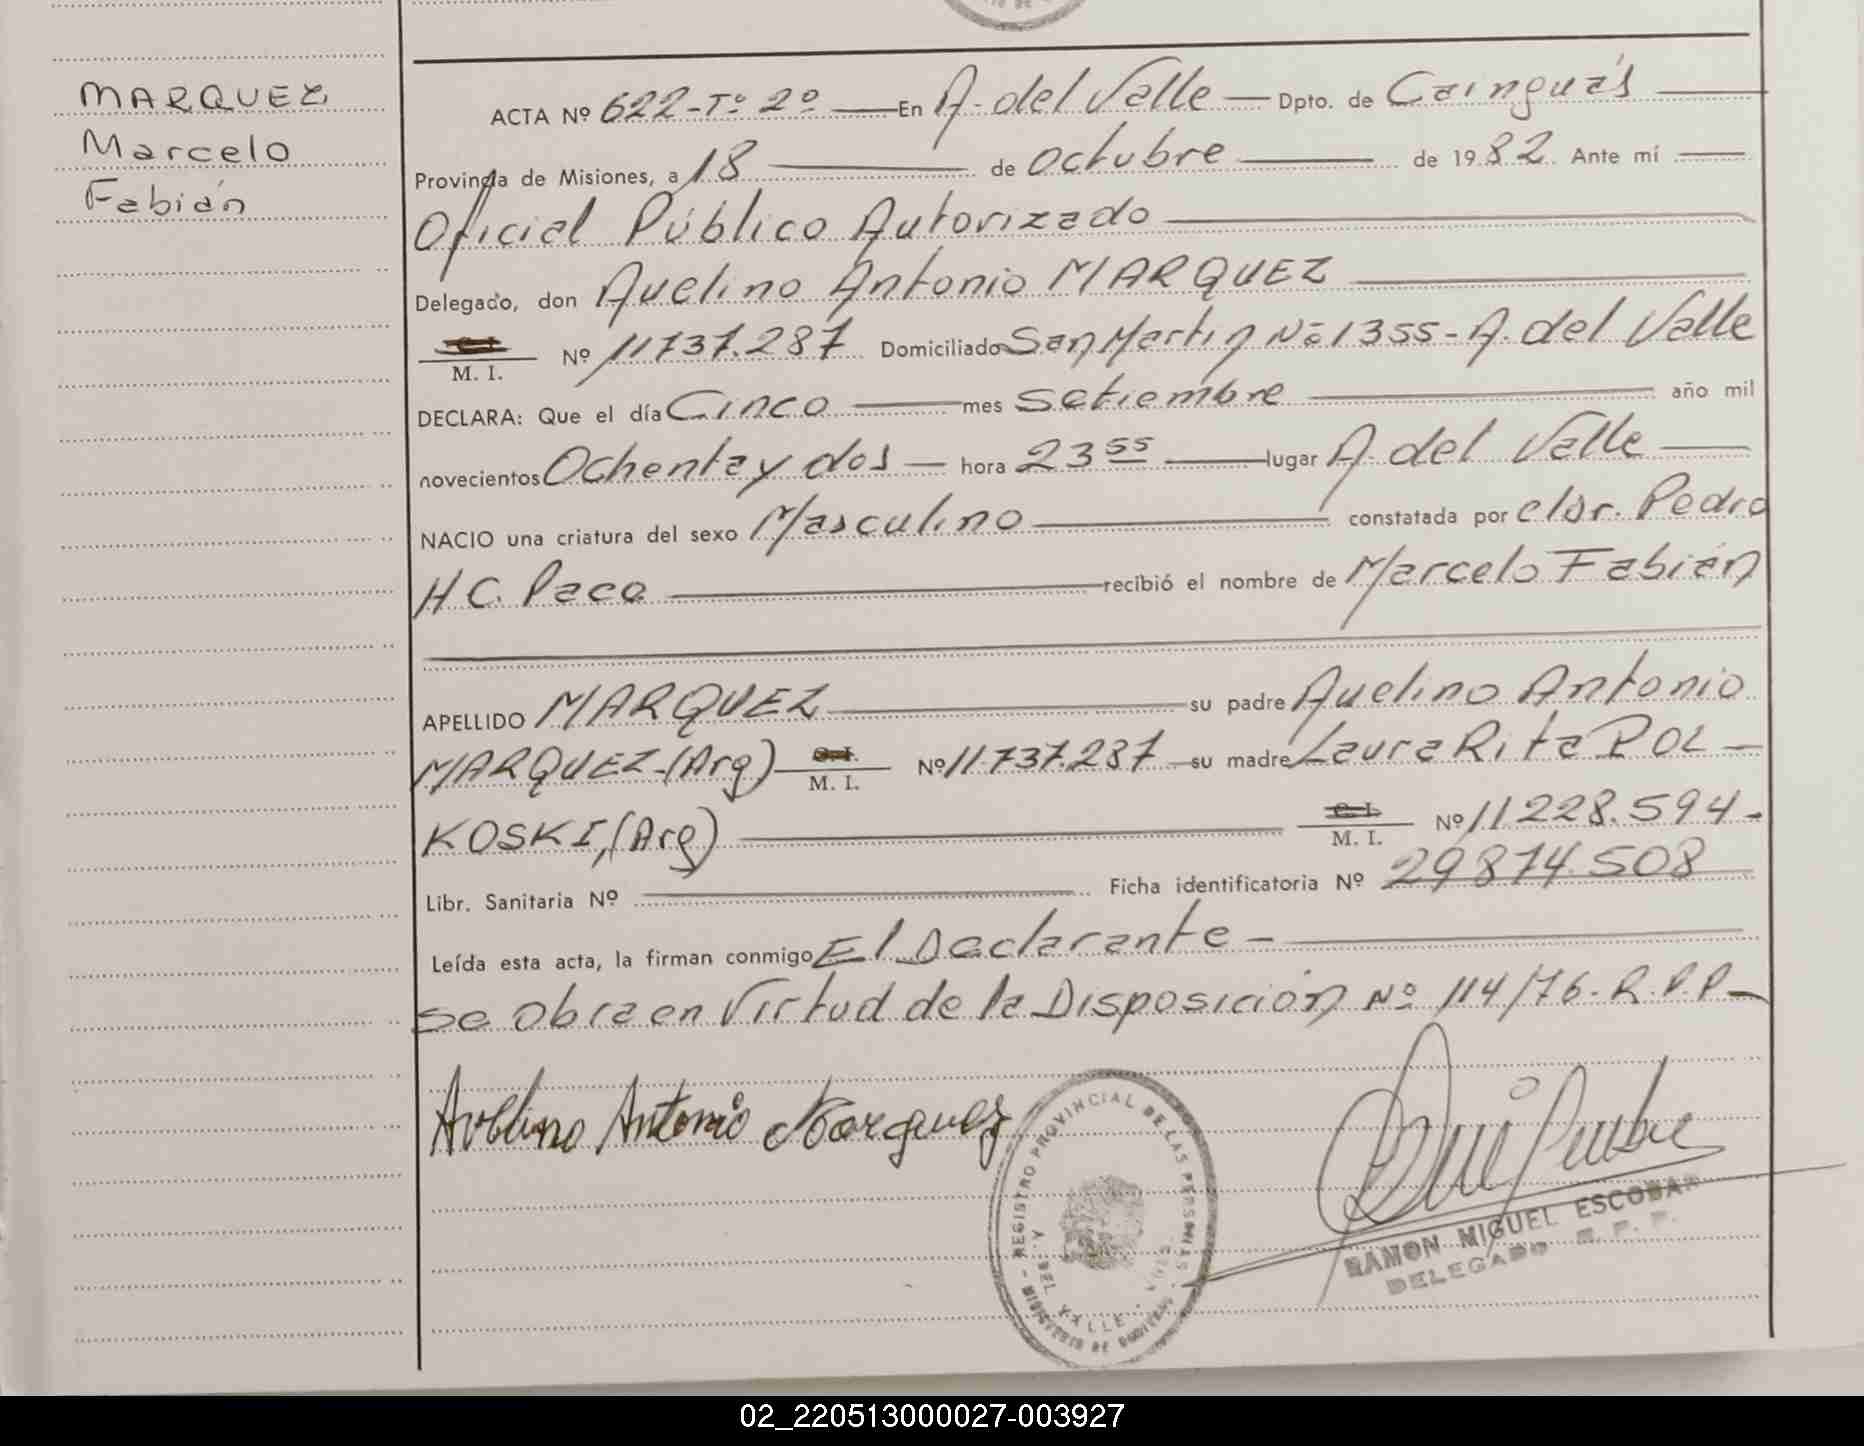 MARQUEZ
Marcelo
Fabián
ACTA Nº 622-Tº 2º En A. del Valle Dpto. de Cainguás
Provincia de Misiones, a 18 de octubre de 1982. Ante mí
Oficial Público Autorizado
Delegado, don Avelino Antonio MARQUEZ
C. I.
M. I. Nº 11737.287 Domiciliado San Martin Nº 1355-A. del Valle
DECLARA: Que el día Cinco mes Setiembre año mil
novecientos Ochenta y dos hora 23 55 lugar A. del Valle
NACIO una criatura del sexo Masculino constatada por el Dr. Pedro
H C. Paco recibió el nombre de Marcelo Fabián
APELLIDO MARQUEZ su padre Avelino Antonio
MARQUEZ-(Arg) C. I.
M. I. Nº 11.737.287 su madre Laura Rita POL-
KOSKI,(Arg) C. I.
M. I. Nº 11228.594-
Libr. Sanitaria Nº Ficha identificatoria Nº 29874.508
Leída esta acta, la firman conmigo El Declarante -
Se obra en Virtud de la Disposición Nº 114/76.R.P.P-
Avelino Antonio Marquez
REGISTRO PROVINCIAL DE LAS PERSONAS
- MINISTERIO DE GOBIERNO -
A. DEL VALLE
RAMON MIGUEL ESCOBAR
DELEGADO
02_220513000027-003927